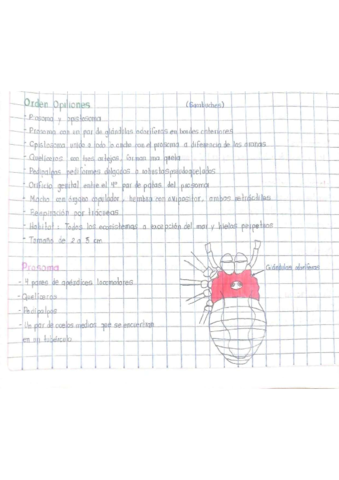 Orden Opiliones (Gankuchen)
- Prosoma y opistosoma
- Prosoma con un par de glándulas odoríferas en bordes anteriores
- Opistosoma unido a todo lo ancho con el prosoma a diferencia de las arañas
- Quelíceros con tres artejos, forman una quela
- Pedipalpos pediformes delgados o robustos
- Orificio genital entre el 4° par de patas del
- Macho con órgano copulador, hembra con ovipositor, ambos retráctiles
- Respiración por tráqueas
- Hábitat: Todos los ecosistemas a excepción del mar y hielos perpetuos
- Tamaño de 2 a 5 cm
Prosoma
Glándulas odoríferas
- 4 pares de apéndices locomotores
- Quelíceros
- Pedipalpos
- Un par de ocelos medios que se encuentran
en un tubérculo